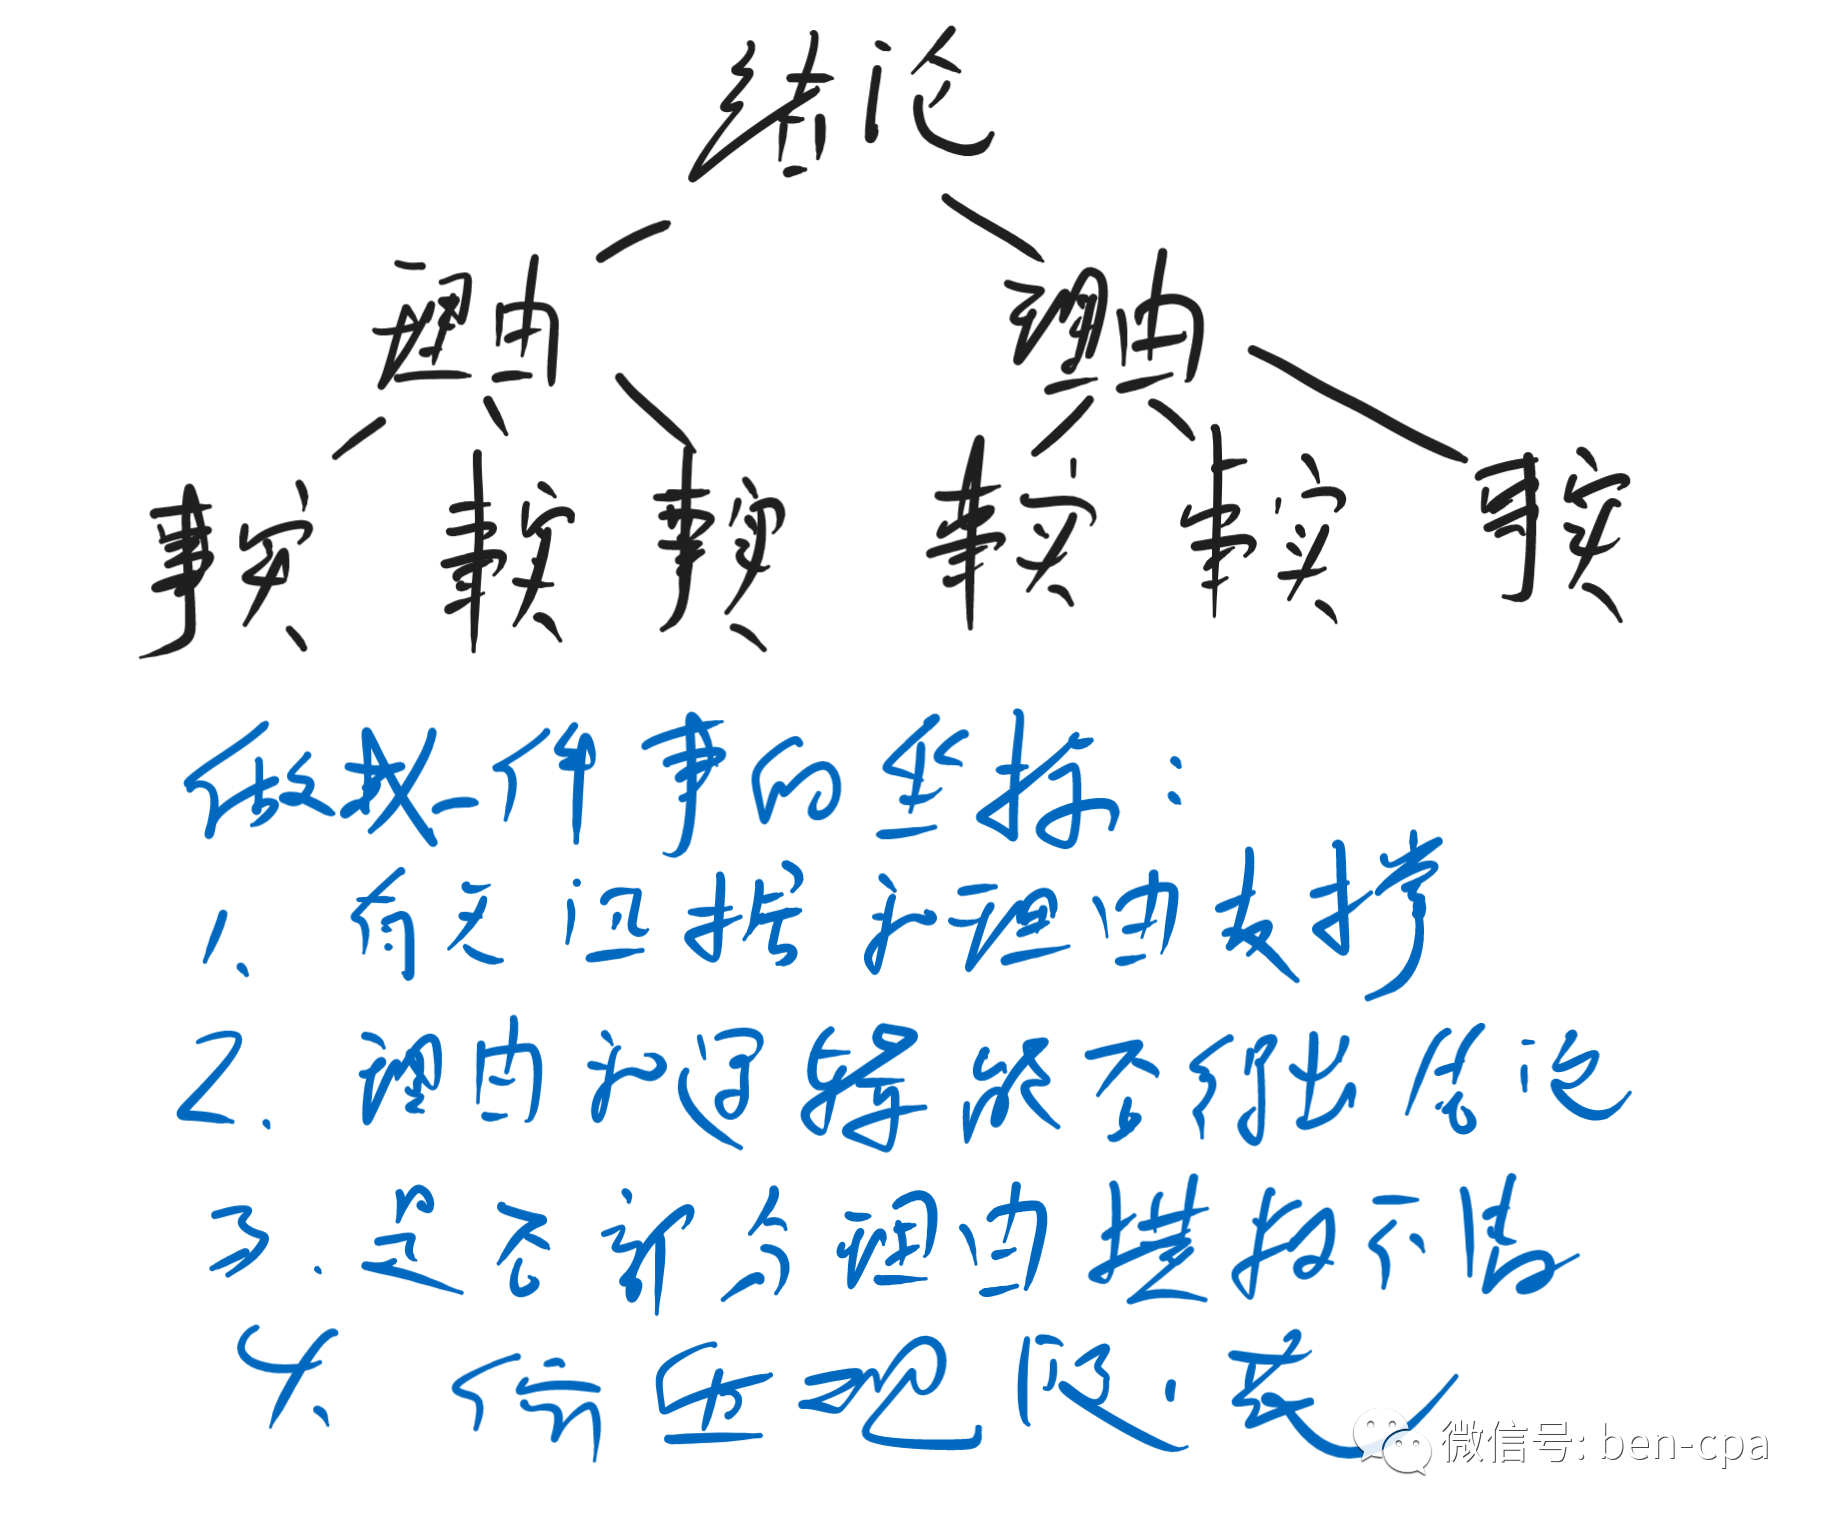 结论
理由 理由
事实 事实 事实 事实 事实 事实
做成一件事的坐标:
1、有无证据和理由支撑
2.理由和逻辑能否得出结论
3.是否部分理由描述不清
4、
微信号: ben-cpa